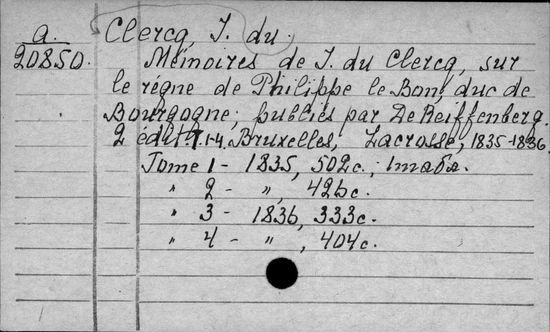 a. Clercq, J. du
20850. Mémoires de J. du Clercq, sur
le règne de Philippe le Bon, duc de
Bourgogne; publiés par De Reiffenberg.
2 édit. T.1-4. Bruxelles, Lacrosse, 1835-1836.
Tome 1 - 1835, 502c., 1табл.
" 2 - ", 426c.
" 3 - 1836, 333c.
" 4 - ", 404c.